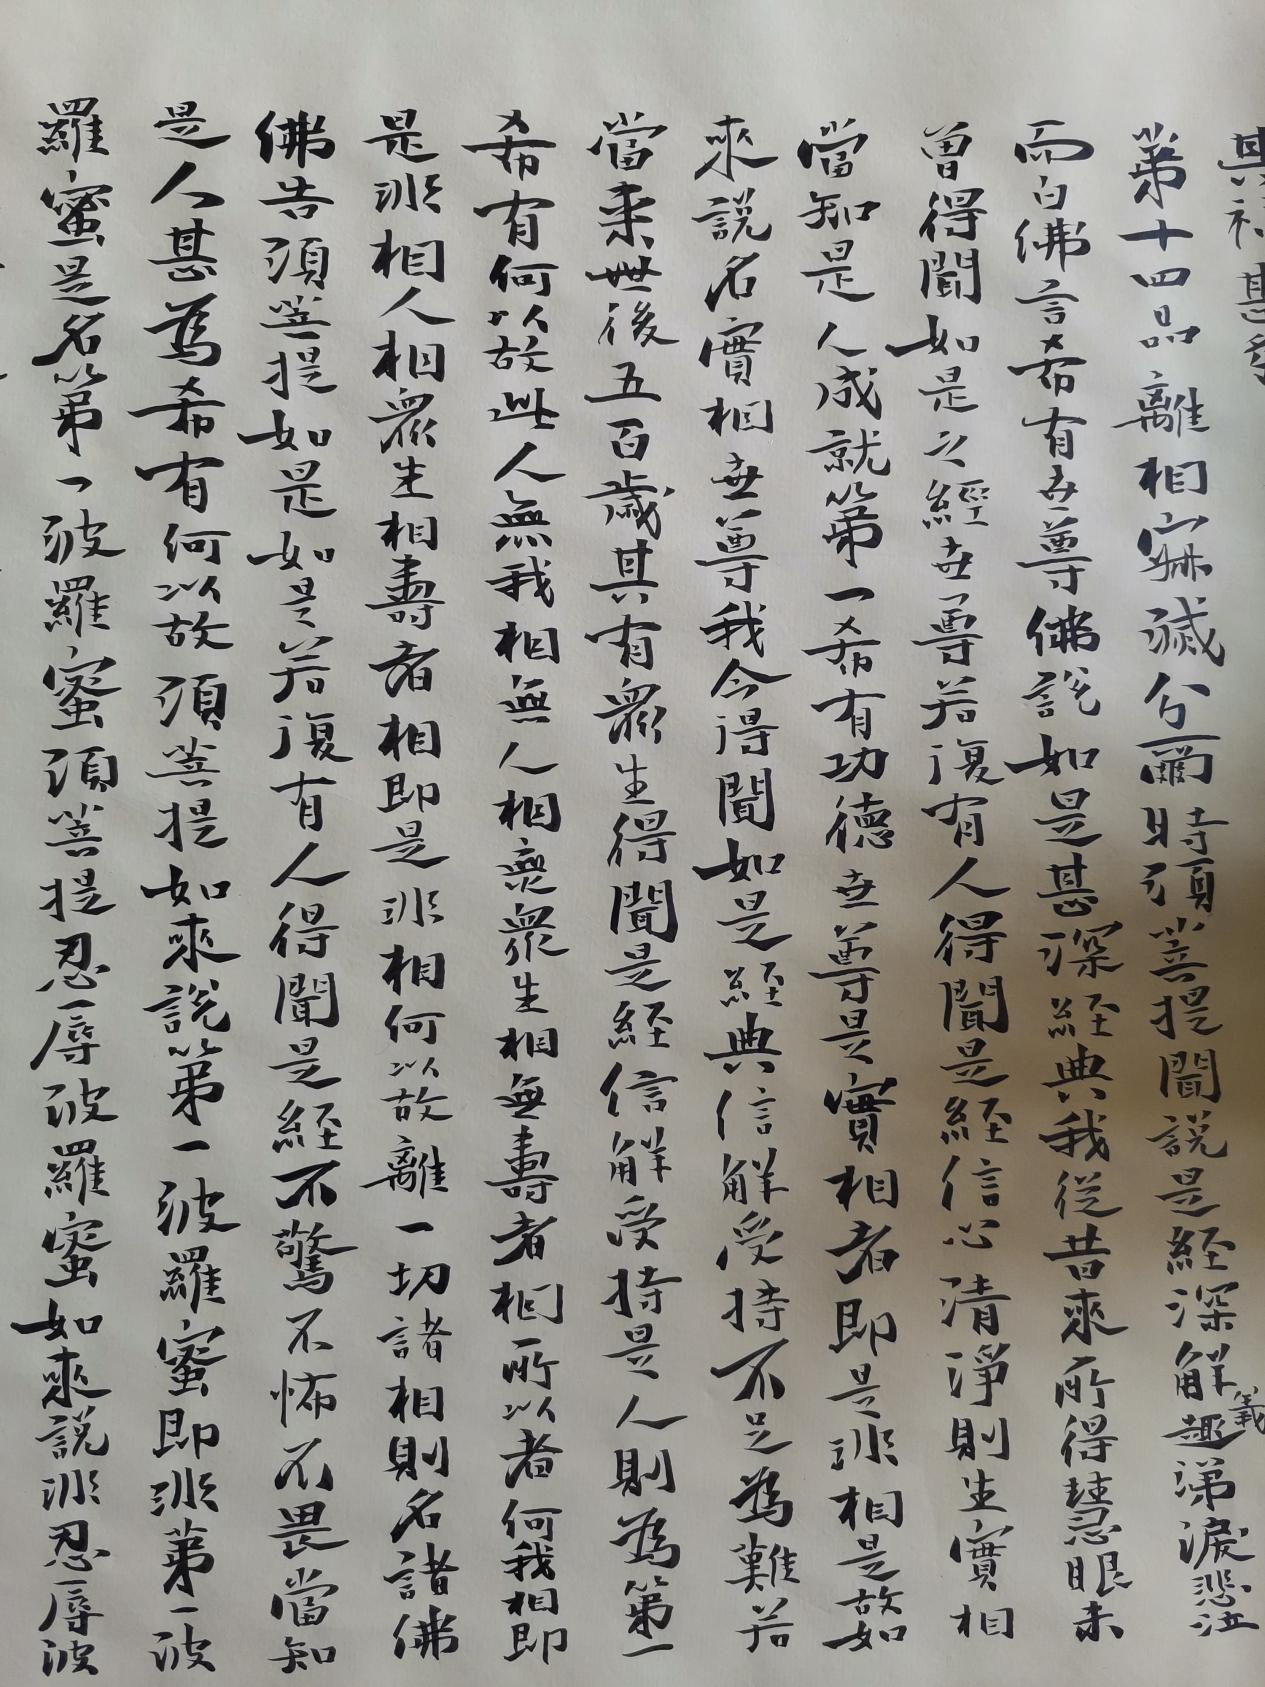 其福甚多
第十四品離相寂滅分爾時須菩提聞說是經深解趣義涕淚悲泣
而白佛言希有世尊佛說如是甚深經典我從昔來所得慧眼未
曾得聞如是之經世尊若復有人得聞是經信心清淨則生實相
當知是人成就第一希有功德世尊是實相者即是非相是故如
來說名實相世尊我今得聞如是經典信解受持不足為難若
當來世後五百歲其有眾生得聞是經信解受持是人則為第一
希有何以故此人無我相無人相眾眾生相無壽者相所以者何我相即
是非相人相眾生相壽者相即是非相何以故離一切諸相則名諸佛
佛告須菩提如是如是若復有人得聞是經不驚不怖不畏當知
是人甚為希有何以故須菩提如來說第一波羅蜜即非第一波
羅蜜是名第一波羅蜜須菩提忍辱波羅蜜如來說非忍辱波